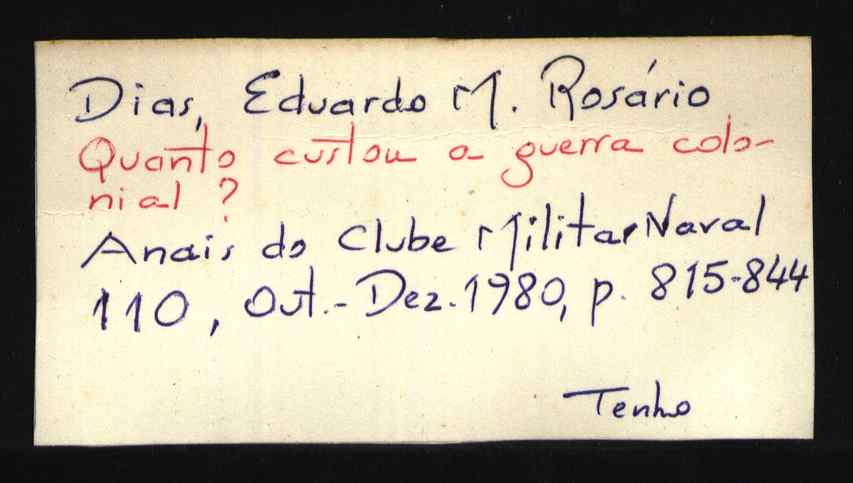 Dias, Eduardo M. Rosário
Quanto custou a guerra colo-
nial ?
Anais do Clube Militar Naval
110, Out.-Dez. 1980, p. 815-844
Tenho